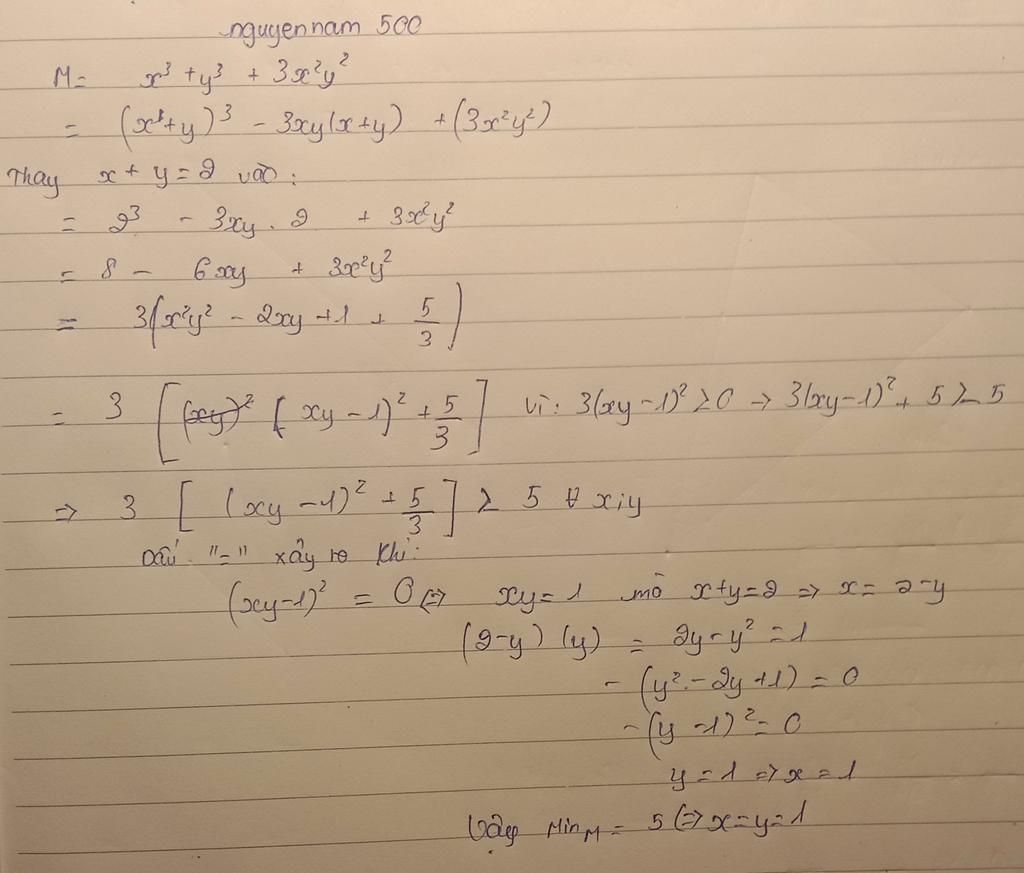 nguyennam 500
M = x³ + y³ + 3x²y²
= (x+y)³ - 3xy(x+y) + (3x²y²)
Thay x + y = 2 vào:
= 2³ - 3xy . 2 + 3x²y²
= 8 - 6xy + 3x²y²
= 3(x²y² - 2xy + 1 + 5/3)
= 3 [(xy - 1)² + 5/3] vì: 3(xy-1)² ≥ 0 → 3(xy-1)² + 5 ≥ 5
⇒ 3 [(xy - 1)² + 5/3] ≥ 5 ∀ x;y
Dấu "=" xảy ra khi:
(xy-1)² = 0 ⇔ xy = 1 mà x+y=2 ⇒ x = 2-y
(2-y)(y) = 2y - y² = 1
- (y² - 2y + 1) = 0
- (y - 1)² = 0
y = 1 ⇒ x = 1
Vậy Min M = 5 ⇔ x=y=1